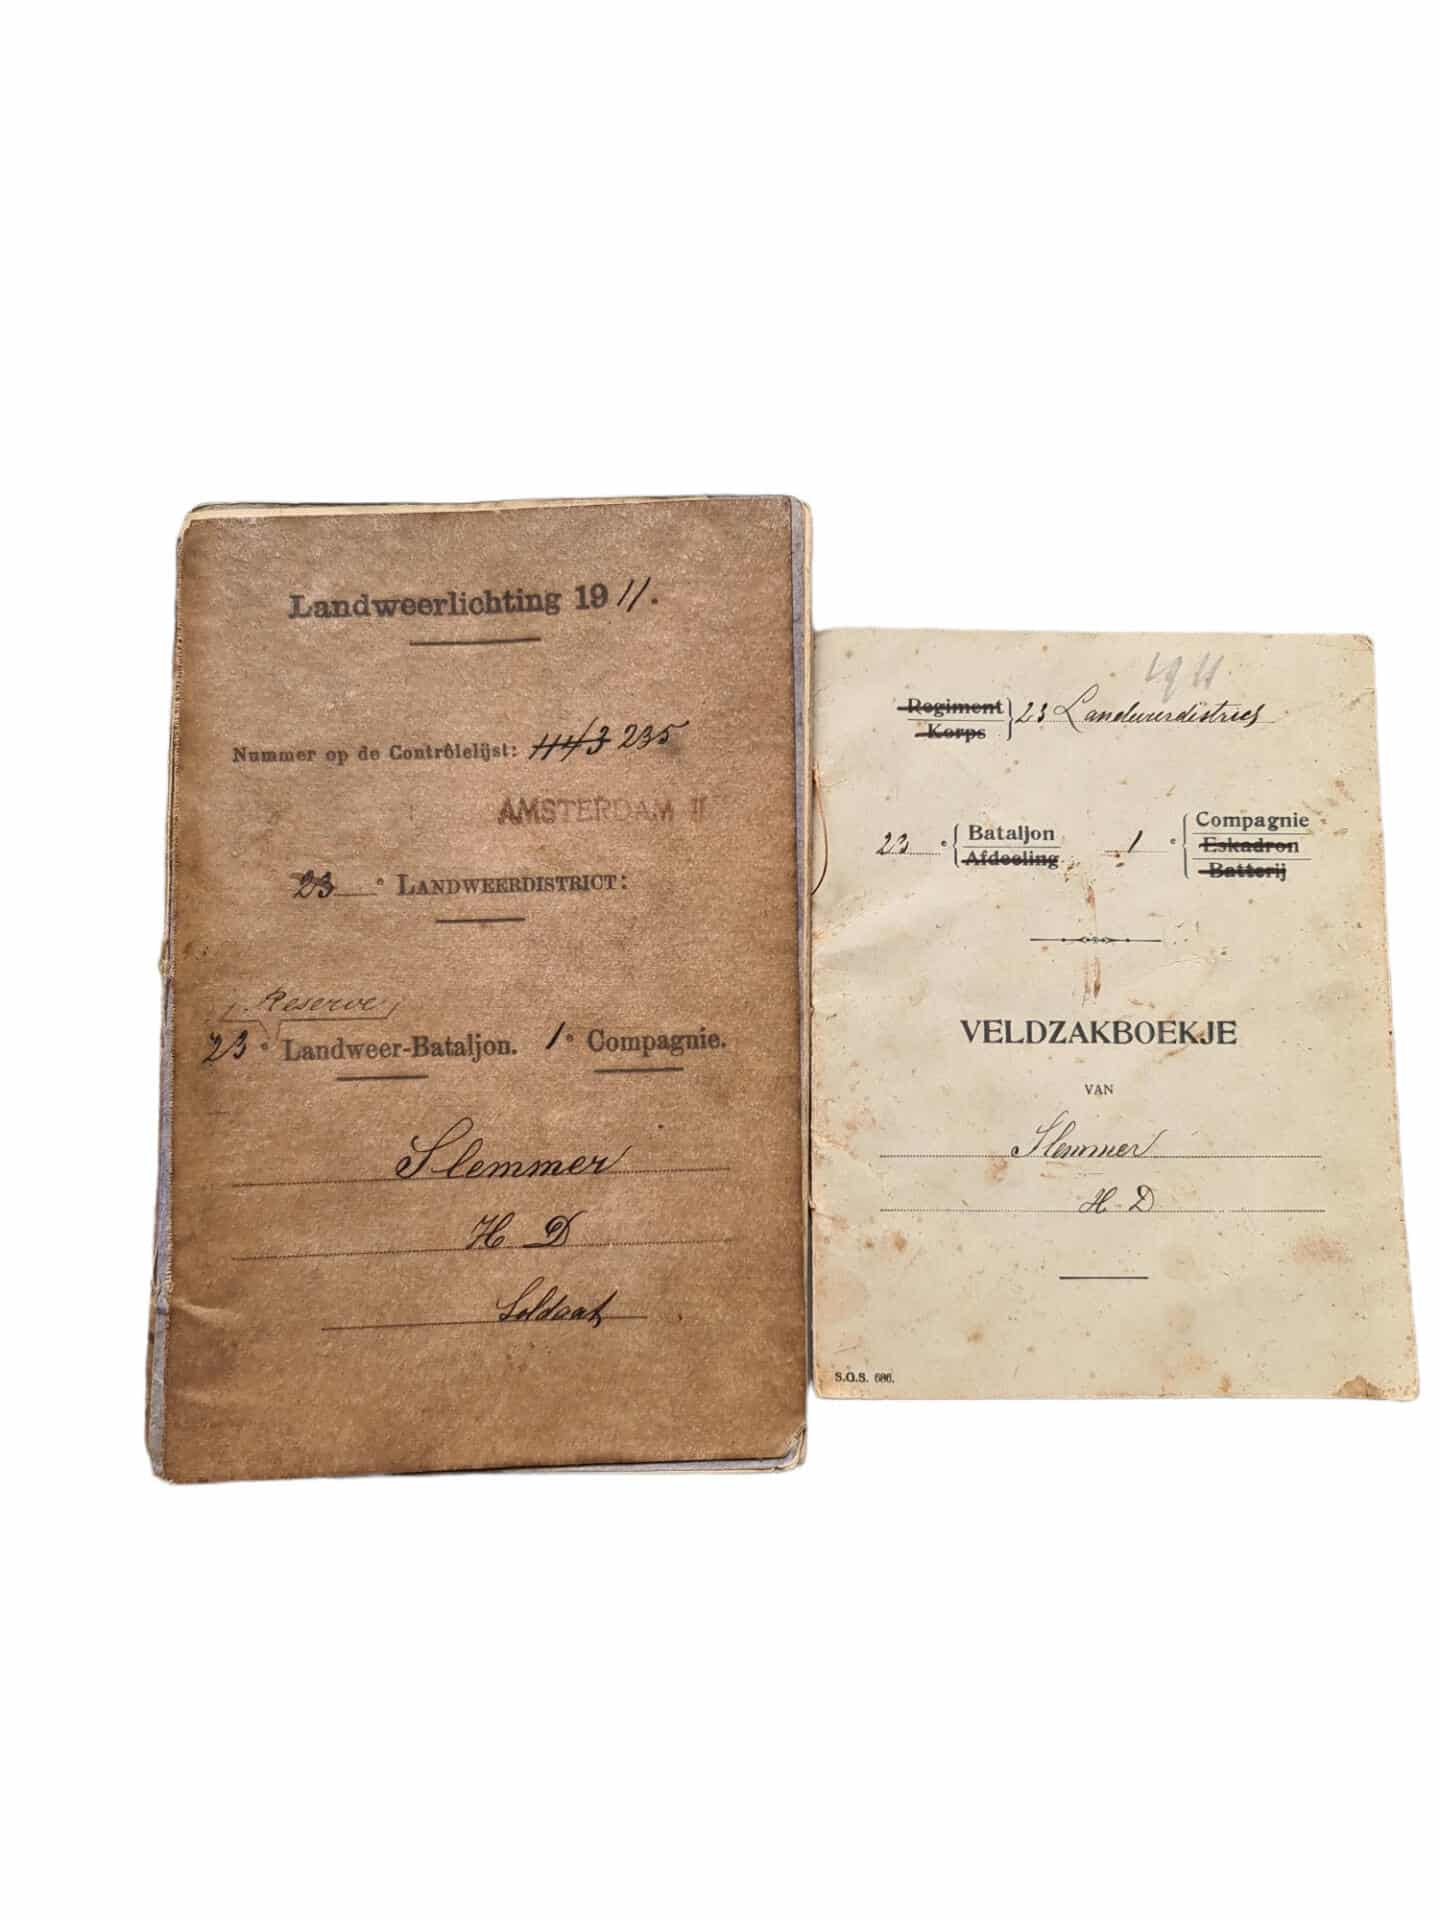 Landweerlichting 19 11.
Nummer op de Contrôlelijst: 1143 235
AMSTERDAM II
23e LANDWEERDISTRICT:
Reserve
23e Landweer-Bataljon. 1e Compagnie.
Slemmer
H D
Soldaat
1911
Regiment
Korps
23 Landweerdistrict
23e Bataljon
Afdeeling
1e Compagnie
Eskadron
Batterij
VELDZAKBOEKJE
VAN
Slemmer
H. D
S.O.S. 686.